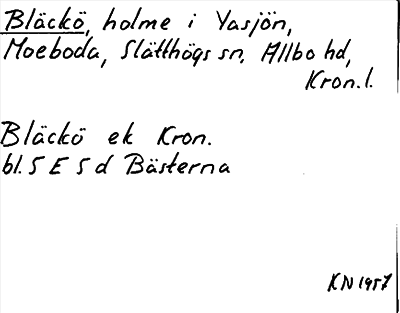 Bläckö, holme i Vasjön,
Moeboda, Slätthögs sn, Allbo hd,
Kron. l.
Bläckö ek Kron.
bl. 5 E 5 d Bästerna
KN 1957